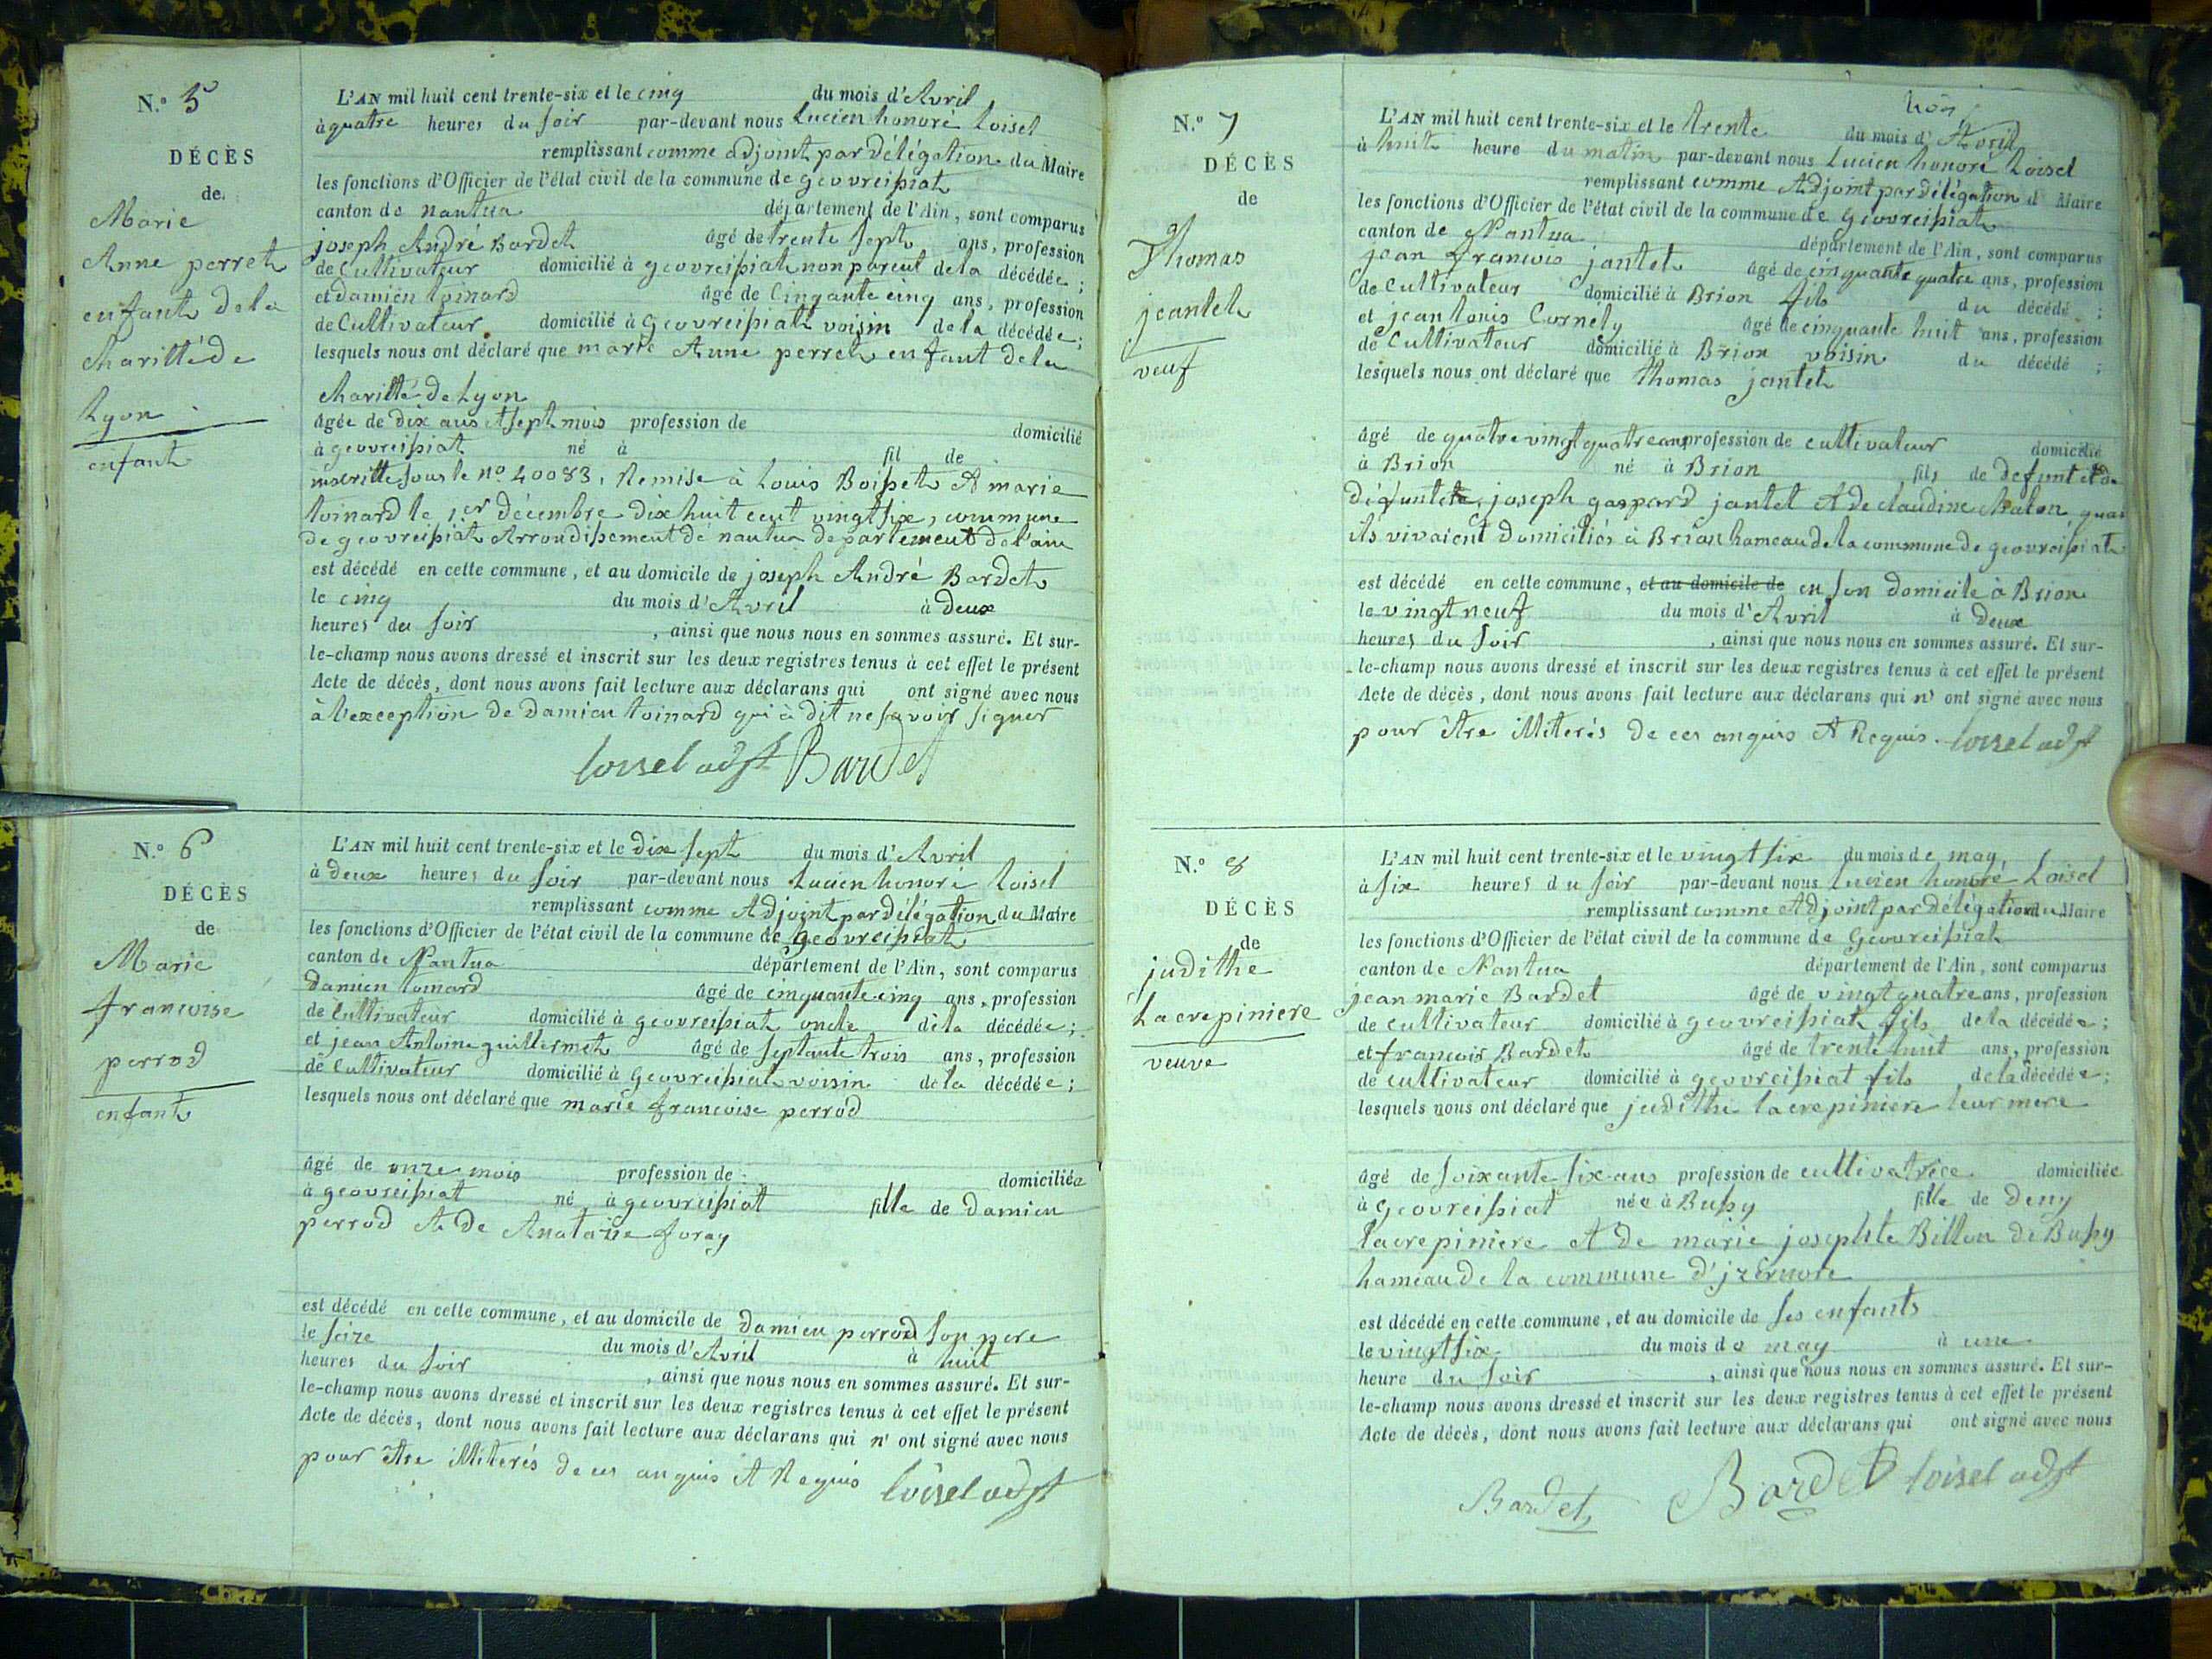 N.º 5
DÉCÈS
de
Marie
Anne perret
enfant de la
Charitté de
Lyon
enfant
L'AN mil huit cent trente-six et le cinq du mois d'Avril
à quatre heures du soir par-devant nous Lucien honoré Loisel
remplissant comme adjoint par délégation du Maire
les fonctions d'Officier de l'état civil de la commune de geovreissiat
canton de nantua département de l'Ain, sont comparus
joseph André Bardet âgé de trente sept ans, profession
de Cultivateur domicilié à geovreissiat non parent de la décédée;
et damien toinard âgé de Cinqante cinq ans, profession
de Cultivateur domicilié à Geovreissiat voisin de la décédée;
lesquels nous ont déclaré que marie Anne perret enfant de la
charitté de Lyon
âgée de dix ans et sept mois profession de domicilié
à geovreissiat né à fil de
inscritte sous le nº 40083, Remise à Louis Boisset et marie
toinard le 1er décembre dix huit cent vingt six, commune
de geovreissiat Arrondissement de nantua departement de l'ain
est décédé en cette commune, et au domicile de joseph André Bardet
le cinq du mois d'Avril à deux
heures du soir, ainsi que nous nous en sommes assuré. Et sur-
le-champ nous avons dressé et inscrit sur les deux registres tenus à cet effet le présent
Acte de décès, dont nous avons fait lecture aux déclarans qui ont signé avec nous
à l'exception de damien toinard qui à dit ne savoir signer
Loisel adjt Bardet
N.º 6
DÉCÈS
de
Marie
francoise
perrod
enfant
L'AN mil huit cent trente-six et le dix sept du mois d'Avril
à deux heures du soir par-devant nous Lucien honoré Loisel
remplissant comme Adjoint par délégation du Maire
les fonctions d'Officier de l'état civil de la commune de geovreissiat
canton de Nantua département de l'Ain, sont comparus
Damien toinard âgé de cinquante cinq ans, profession
de Cultivateur domicilié à geovreissiat oncle de la décédée;
et jean Antoine guillermet âgé de septante trois ans, profession
de Cultivateur domicilié à Geovreissiat voisin de la décédée;
lesquels nous ont déclaré que marie francoise perrod
âgé de onze mois profession de domiciliée
à geovreissiat né à geovreissiat fille de Damien
perrod et de Anatoizie foray
est décédé en cette commune, et au domicile de damien perrod son pere
le seize du mois d'Avril à huit
heures du soir, ainsi que nous nous en sommes assuré. Et sur-
le-champ nous avons dressé et inscrit sur les deux registres tenus à cet effet le présent
Acte de décès, dont nous avons fait lecture aux déclarans qui n' ont signé avec nous
pour être illiterés de ces anquis et Requis Loisel adjt
N.º 7
DÉCÈS
de
Thomas
jeantet
veuf
L'AN mil huit cent trente-six et le trente du mois d'Avril
à huit heure du matin par-devant nous Lucien honoré Loisel
remplissant comme Adjoint par délégation d Maire
les fonctions d'Officier de l'état civil de la commune de Geovreissiat
canton de Nantua département de l'Ain, sont comparus
jean francois jantet âgé de cinquante quatre ans, profession
de Cultivateur domicilié à Brion fils du décédé;
et jean louis Cornely âgé de cinquante huit ans, profession
de Cultivateur domicilié à Brion voisin du décédé;
lesquels nous ont déclaré que thomas jantet
âgé de quatre vingt quatre ans profession de cultivateur domicilié
à Brion né à Brion fils de defunt et de
défunte joseph gaspard jantet et de claudine chaton quan
ils vivaient domiciliés à Brion hameau de la commune de geovreissiat
est décédé en cette commune, et au domicile de en son domicile à Brion
le vingt neuf du mois d'Avril à deux
heures du soir, ainsi que nous nous en sommes assuré. Et sur-
le-champ nous avons dressé et inscrit sur les deux registres tenus à cet effet le présent
Acte de décès, dont nous avons fait lecture aux déclarans qui n' ont signé avec nous
pour être illiterés de ces anquis et Requis. Loisel adjt
N.º 8
DÉCÈS
de
judithe
Lacrepiniere
veuve
L'AN mil huit cent trente-six et le vingt six du mois de may
à six heures du soir par-devant nous Lucien honoré Loisel
remplissant comme Adjoint par délégation du Maire
les fonctions d'Officier de l'état civil de la commune de Geovreissiat
canton de Nantua département de l'Ain, sont comparus
jean marie Bardet âgé de vingt quatre ans, profession
de cultivateur domicilié à geovreissiat fils de la décédée;
et francois Bardet âgé de trente huit ans, profession
de cultivateur domicilié à geovreissiat fils de la décédée;
lesquels nous ont déclaré que judithe lacrepiniere leur mere
âgé de soixante six ans profession de cultivatrice domiciliée
à Geovreissiat née à Bussy fille de deny
lacrepiniere et de marie josephte Billon de Bussy
hameau de la commune d'jzernore
est décédé en cette commune, et au domicile de ses enfants
le vingt six du mois de may à une
heure du soir, ainsi que nous nous en sommes assuré. Et sur-
le-champ nous avons dressé et inscrit sur les deux registres tenus à cet effet le présent
Acte de décès, dont nous avons fait lecture aux déclarans qui ont signé avec nous
Bardet Bardet Loisel adjt